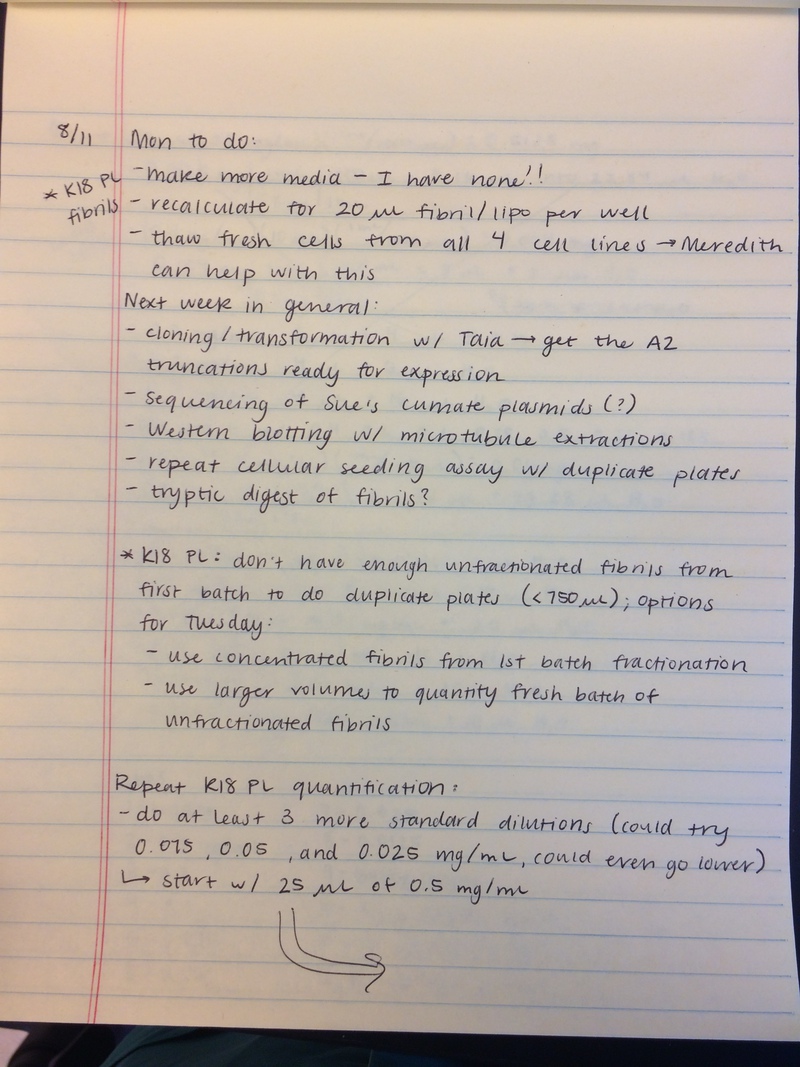 8/11 Mon to do:
* K18 PL fibrils
- make more media - I have none!!
- recalculate for 20 µL fibril/lipo per well
- thaw fresh cells from all 4 cell lines → Meredith
can help with this
Next week in general:
- cloning/transformation w/ Taia → get the A2
truncations ready for expression
- Sequencing of Sue's cumate plasmids (?)
- Western blotting w/ microtubule extractions
- repeat cellular seeding assay w/ duplicate plates
- tryptic digest of fibrils?
* K18 PL: don't have enough unfractionated fibrils from
first batch to do duplicate plates (<750 µL); options
for Tuesday:
- use concentrated fibrils from 1st batch fractionation
- use larger volumes to quantify fresh batch of
unfractionated fibrils
Repeat K18 PL quantification:
- do at least 3 more standard dilutions (could try
0.075, 0.05, and 0.025 mg/mL, could even go lower)
↳ start w/ 25 µL of 0.5 mg/mL